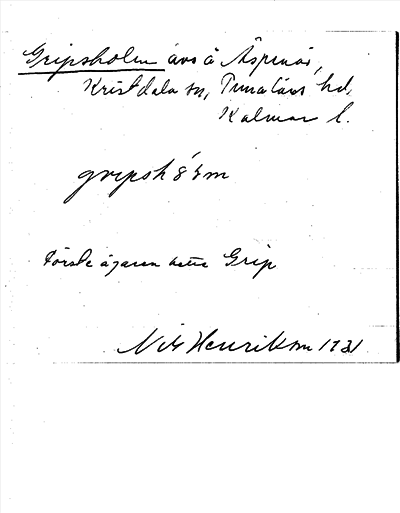 Gripsholm avs å Äspenäs,
Kristdala sn, Tunaläns hd,
Kalmar l.
Förste ägaren hette Grip
Nils Henrikson 1931